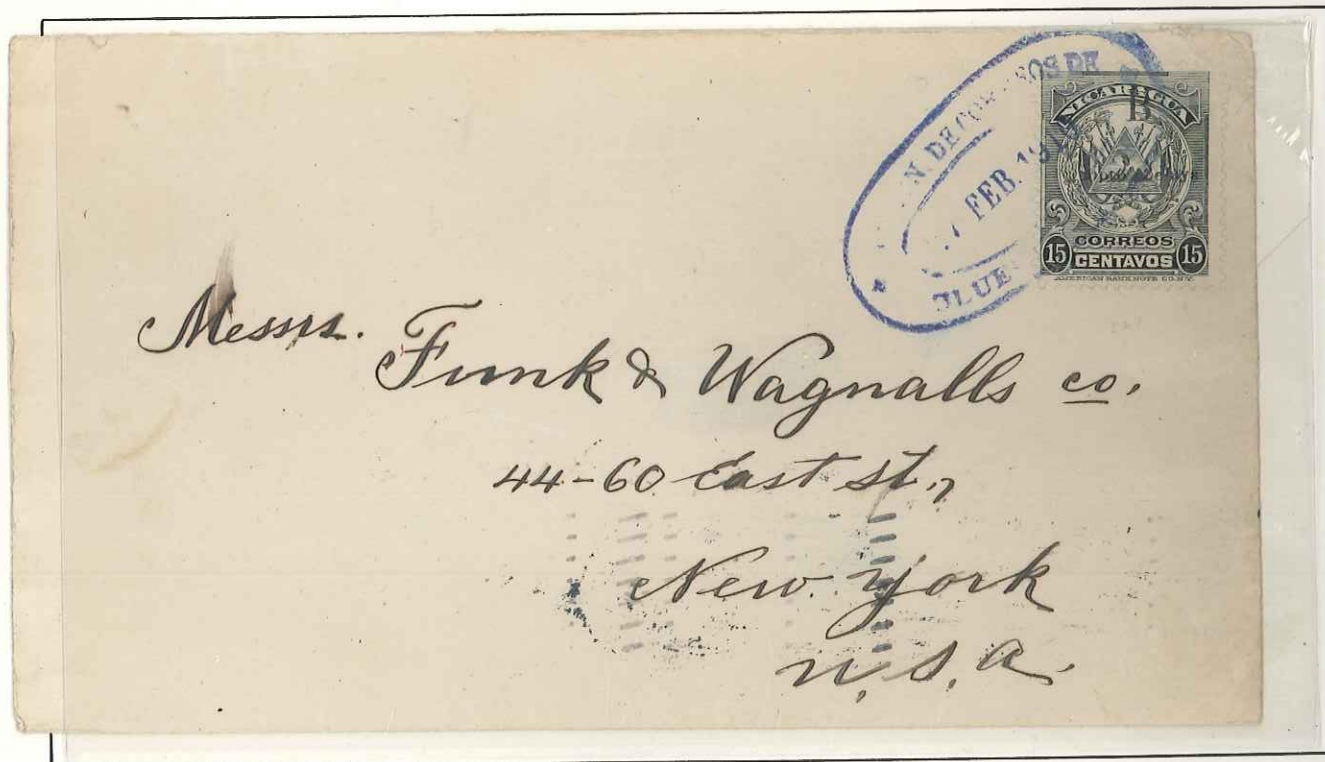 N. DE CORREOS DE
FEB. 191
BLUE
NICARAGUA
B
CORREOS
15 CENTAVOS 15
AMERICAN BANK NOTE CO. N.Y.
Messrs.
Funk & Wagnalls co.
44-60 East st.,
New York
U.S.A.